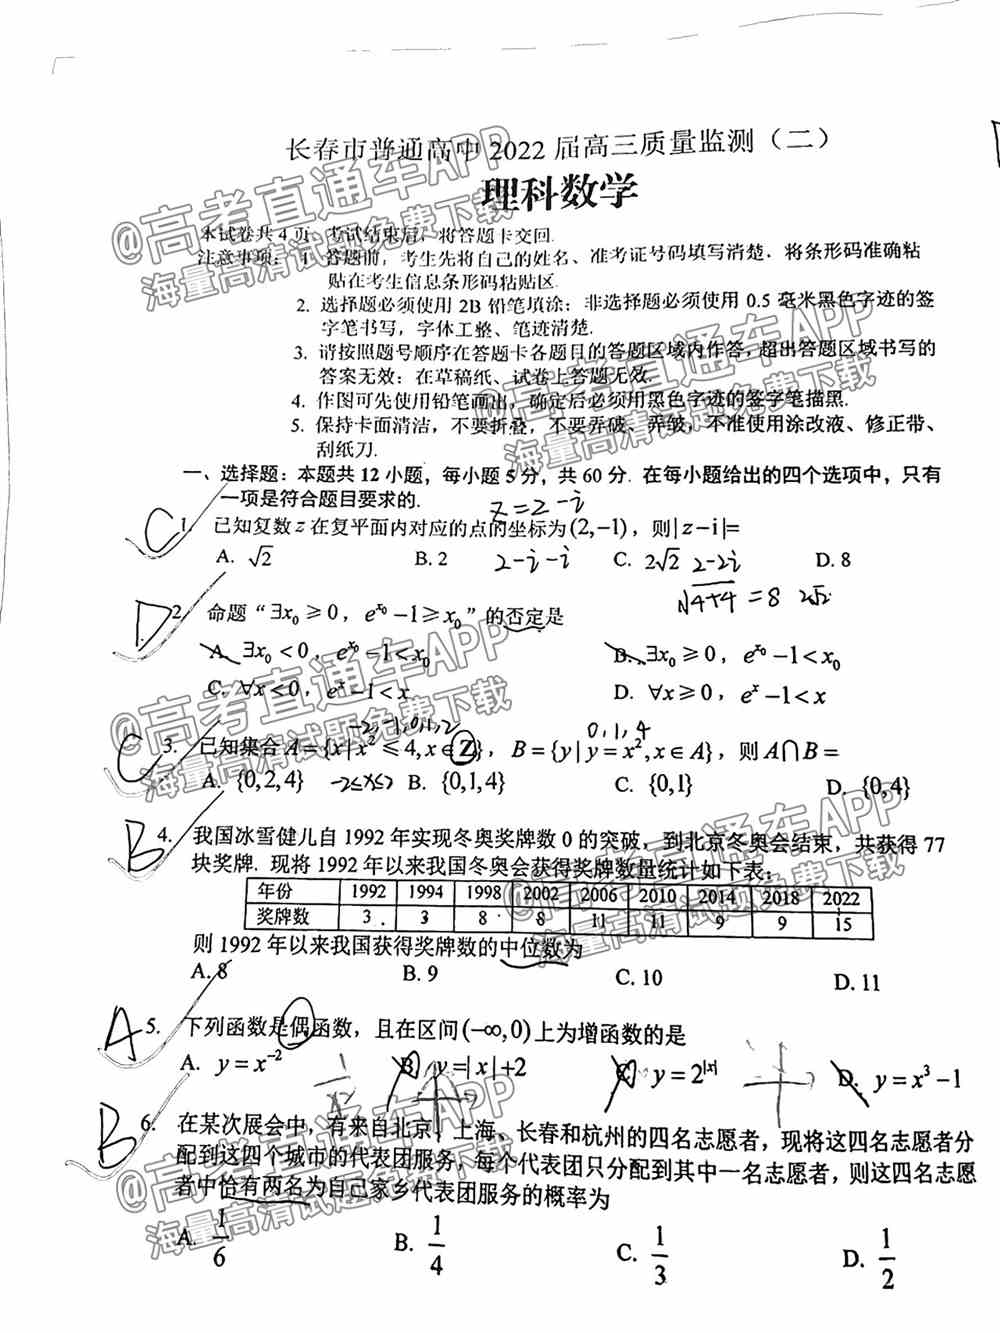 长春市普通高中 2022 届高三质量监测（二）
理科数学
本试卷共 4 页. 考试结束后，将答题卡交回.
注意事项：1. 答题前，考生先将自己的姓名、准考证号码填写清楚. 将条形码准确粘
贴在考生信息条形码粘贴区.
2. 选择题必须使用 2B 铅笔填涂；非选择题必须使用 0.5 毫米黑色字迹的签
字笔书写，字体工整、笔迹清楚.
3. 请按照题号顺序在答题卡各题目的答题区域内作答，超出答题区域书写的
答案无效；在草稿纸、试卷上答题无效.
4. 作图可先使用铅笔画出，确定后必须用黑色字迹的签字笔描黑.
5. 保持卡面清洁，不要折叠，不要弄破、弄皱，不准使用涂改液、修正带、
刮纸刀.
一、选择题：本题共 12 小题，每小题 5 分，共 60 分. 在每小题给出的四个选项中，只有
一项是符合题目要求的.
z=2-i
C 1. 已知复数 z 在复平面内对应的点的坐标为(2,-1)，则|z-i|=
A. √2 B. 2 2-i-i C. 2√2 2-2i D. 8
√4+4 =8 2√2
D 2. 命题“∃x₀≥0，e^{x₀}-1≥x₀”的否定是
A. ∃x₀<0，e^{x₀}-1<x₀ B. ∃x₀≥0，e^{x₀}-1<x₀
C. ∀x<0，e^x-1<x D. ∀x≥0，e^x-1<x
-2,-1,0,1,2 0,1,4
C 3. 已知集合 A={x|x²≤4,x∈Z}，B={y|y=x²,x∈A}，则 A∩B=
A. {0,2,4} -2≤x≤2 B. {0,1,4} C. {0,1} D. {0,4}
B 4. 我国冰雪健儿自 1992 年实现冬奥奖牌数 0 的突破，到北京冬奥会结束，共获得 77
块奖牌. 现将 1992 年以来我国冬奥会获得奖牌数量统计如下表：
年份 1992 1994 1998 2002 2006 2010 2014 2018 2022
奖牌数 3 3 8 8 11 11 9 9 15
则 1992 年以来我国获得奖牌数的中位数为
A. 8 B. 9 C. 10 D. 11
A 5. 下列函数是偶函数，且在区间(-∞,0)上为增函数的是
A. y=x⁻² B. y=|x|+2 C. y=2^{|x|} D. y=x³-1
B 6. 在某次展会中，有来自北京、上海、长春和杭州的四名志愿者，现将这四名志愿者分
配到这四个城市的代表团服务，每个代表团只分配到其中一名志愿者，则这四名志愿
者中恰有两名为自己家乡代表团服务的概率为
A. 1/6 B. 1/4 C. 1/3 D. 1/2
@高考直通车APP
海量高清试题免费下载
@高考直通车APP
海量高清试题免费下载
@高考直通车APP
海量高清试题免费下载
@高考直通车APP
海量高清试题免费下载
@高考直通车APP
海量高清试题免费下载